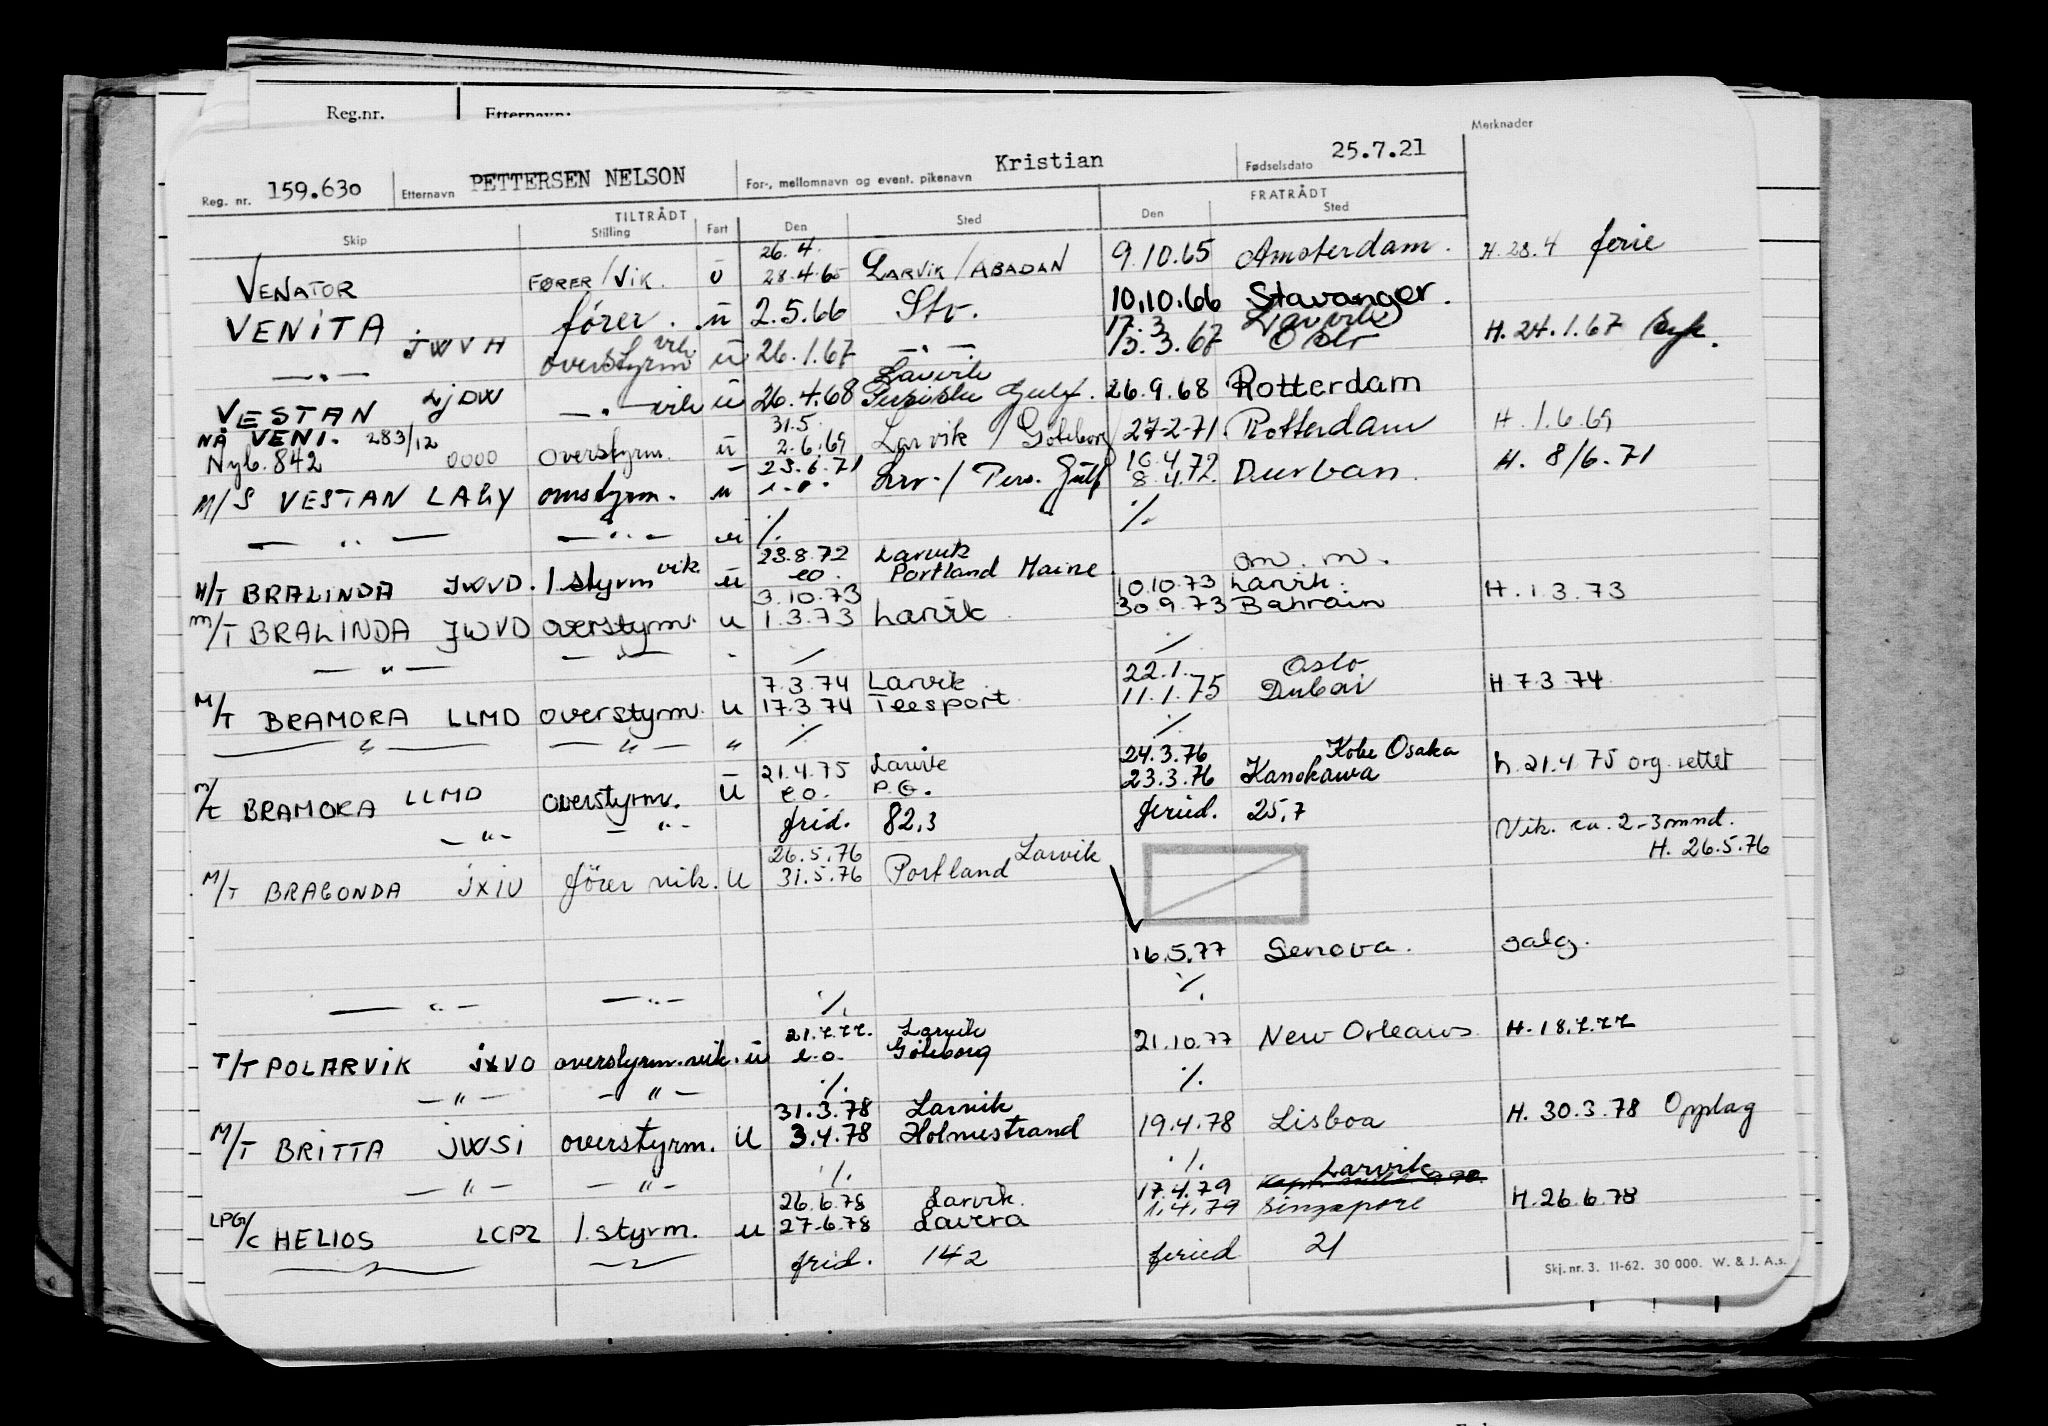 Reg.nr. Etternavn:
Merknader
Reg. nr. 159.630 Etternavn PETTERSEN NELSON For-, mellomnavn og event. pikenavn Kristian Fødselsdato 25.7.21
TILTRÅDT FRATRÅDT
Skip Stilling Fart Den Sted Den Sted
26.4.
VENATOR FØRER/VIK. u 28.4.65 LARVIK / ABADAN 9.10.65 Amsterdam. H. 28.4 ferie
VENITA fører. u 2.5.66 Stv. 10.10.66 Stavanger.
17.3 Larvik
— " — JWVH overstyrm vik u 26.1.67 — " — 13.3.67 Oslo H. 24.1.67
Larvik
VESTAN LJDW — " — vik u 26.4.68 Persiske Gulf. 26.9.68 Rotterdam
NÅ VENI. 283/12 31.5
Nyb. 842 0000 overstyrm. u 2.6.69 Larvik / Göteborg 27-2-71. Rotterdam H. 1.6.69
23.6.71 10.4.72
M/S VESTAN LAGY omstyrm. u e.o. Lrv. / Pers. Gulf 8.4.72. Durban. H. 8/6.71
— " — — " — u ٪ ٪
23.8.72 Larvik om. m.
M/T BRALINDA JWVD. 1 styrm vik u eo. Portland Maine
3.10.73 10.10.73 Larvik.
M/T BRALINDA JWVD overstyrm. u 1.3.73 Larvik 30.9.73 Bahrain H. 1.3.73
— " — — " — " ٪ ٪
7.3.74 Larvik 22.1. Oslo
M/T BRAMORA LLMD overstyrm. u 17.3.74 Teesport 11.1.75 Dubai H 7.3.74
— " — — " — " ٪ ٪
21.4.75 Larvik 24.3.76 Kobe Osaka
M/T BRAMORA LLMD overstyrm. u eo. P.G. 23.3.76 Kanokawa h. 21.4.75 org. rettet
— " — — " — frid. 82,3 feried. 25,7
Vik. ca. 2-3 mnd.
26.5.76 Larvik H. 26.5.76
M/T BRAGONDA JXIU fører vik. U 31.5.76 Portland
16.5.77 Genova. salg.
— " — — " — ٪ ٪
21.7.77. Larvik
T/T POLARVIK JXVO overstyrm. vik. u e.o. Göteborg 21.10.77 New Orleans H. 18.7.77
— " — — " — ٪ ٪
31.3.78 Larvik
M/T BRITTA JWSI overstyrm. U 3.4.78 Holmestrand 19.4.78 Lisboa H. 30.3.78 Opplag
— " — — " — ٪ ٪
26.6.78 Larvik. 17.4.79 Larvik
LPG/C HELIOS LCPZ 1. styrm. u 27.6.78 Lavera 1.4.79 Singapore H. 26.6.78
frid. 142 feried 21
Skj. nr. 3. 11-62. 30 000. W. & J. A.s.